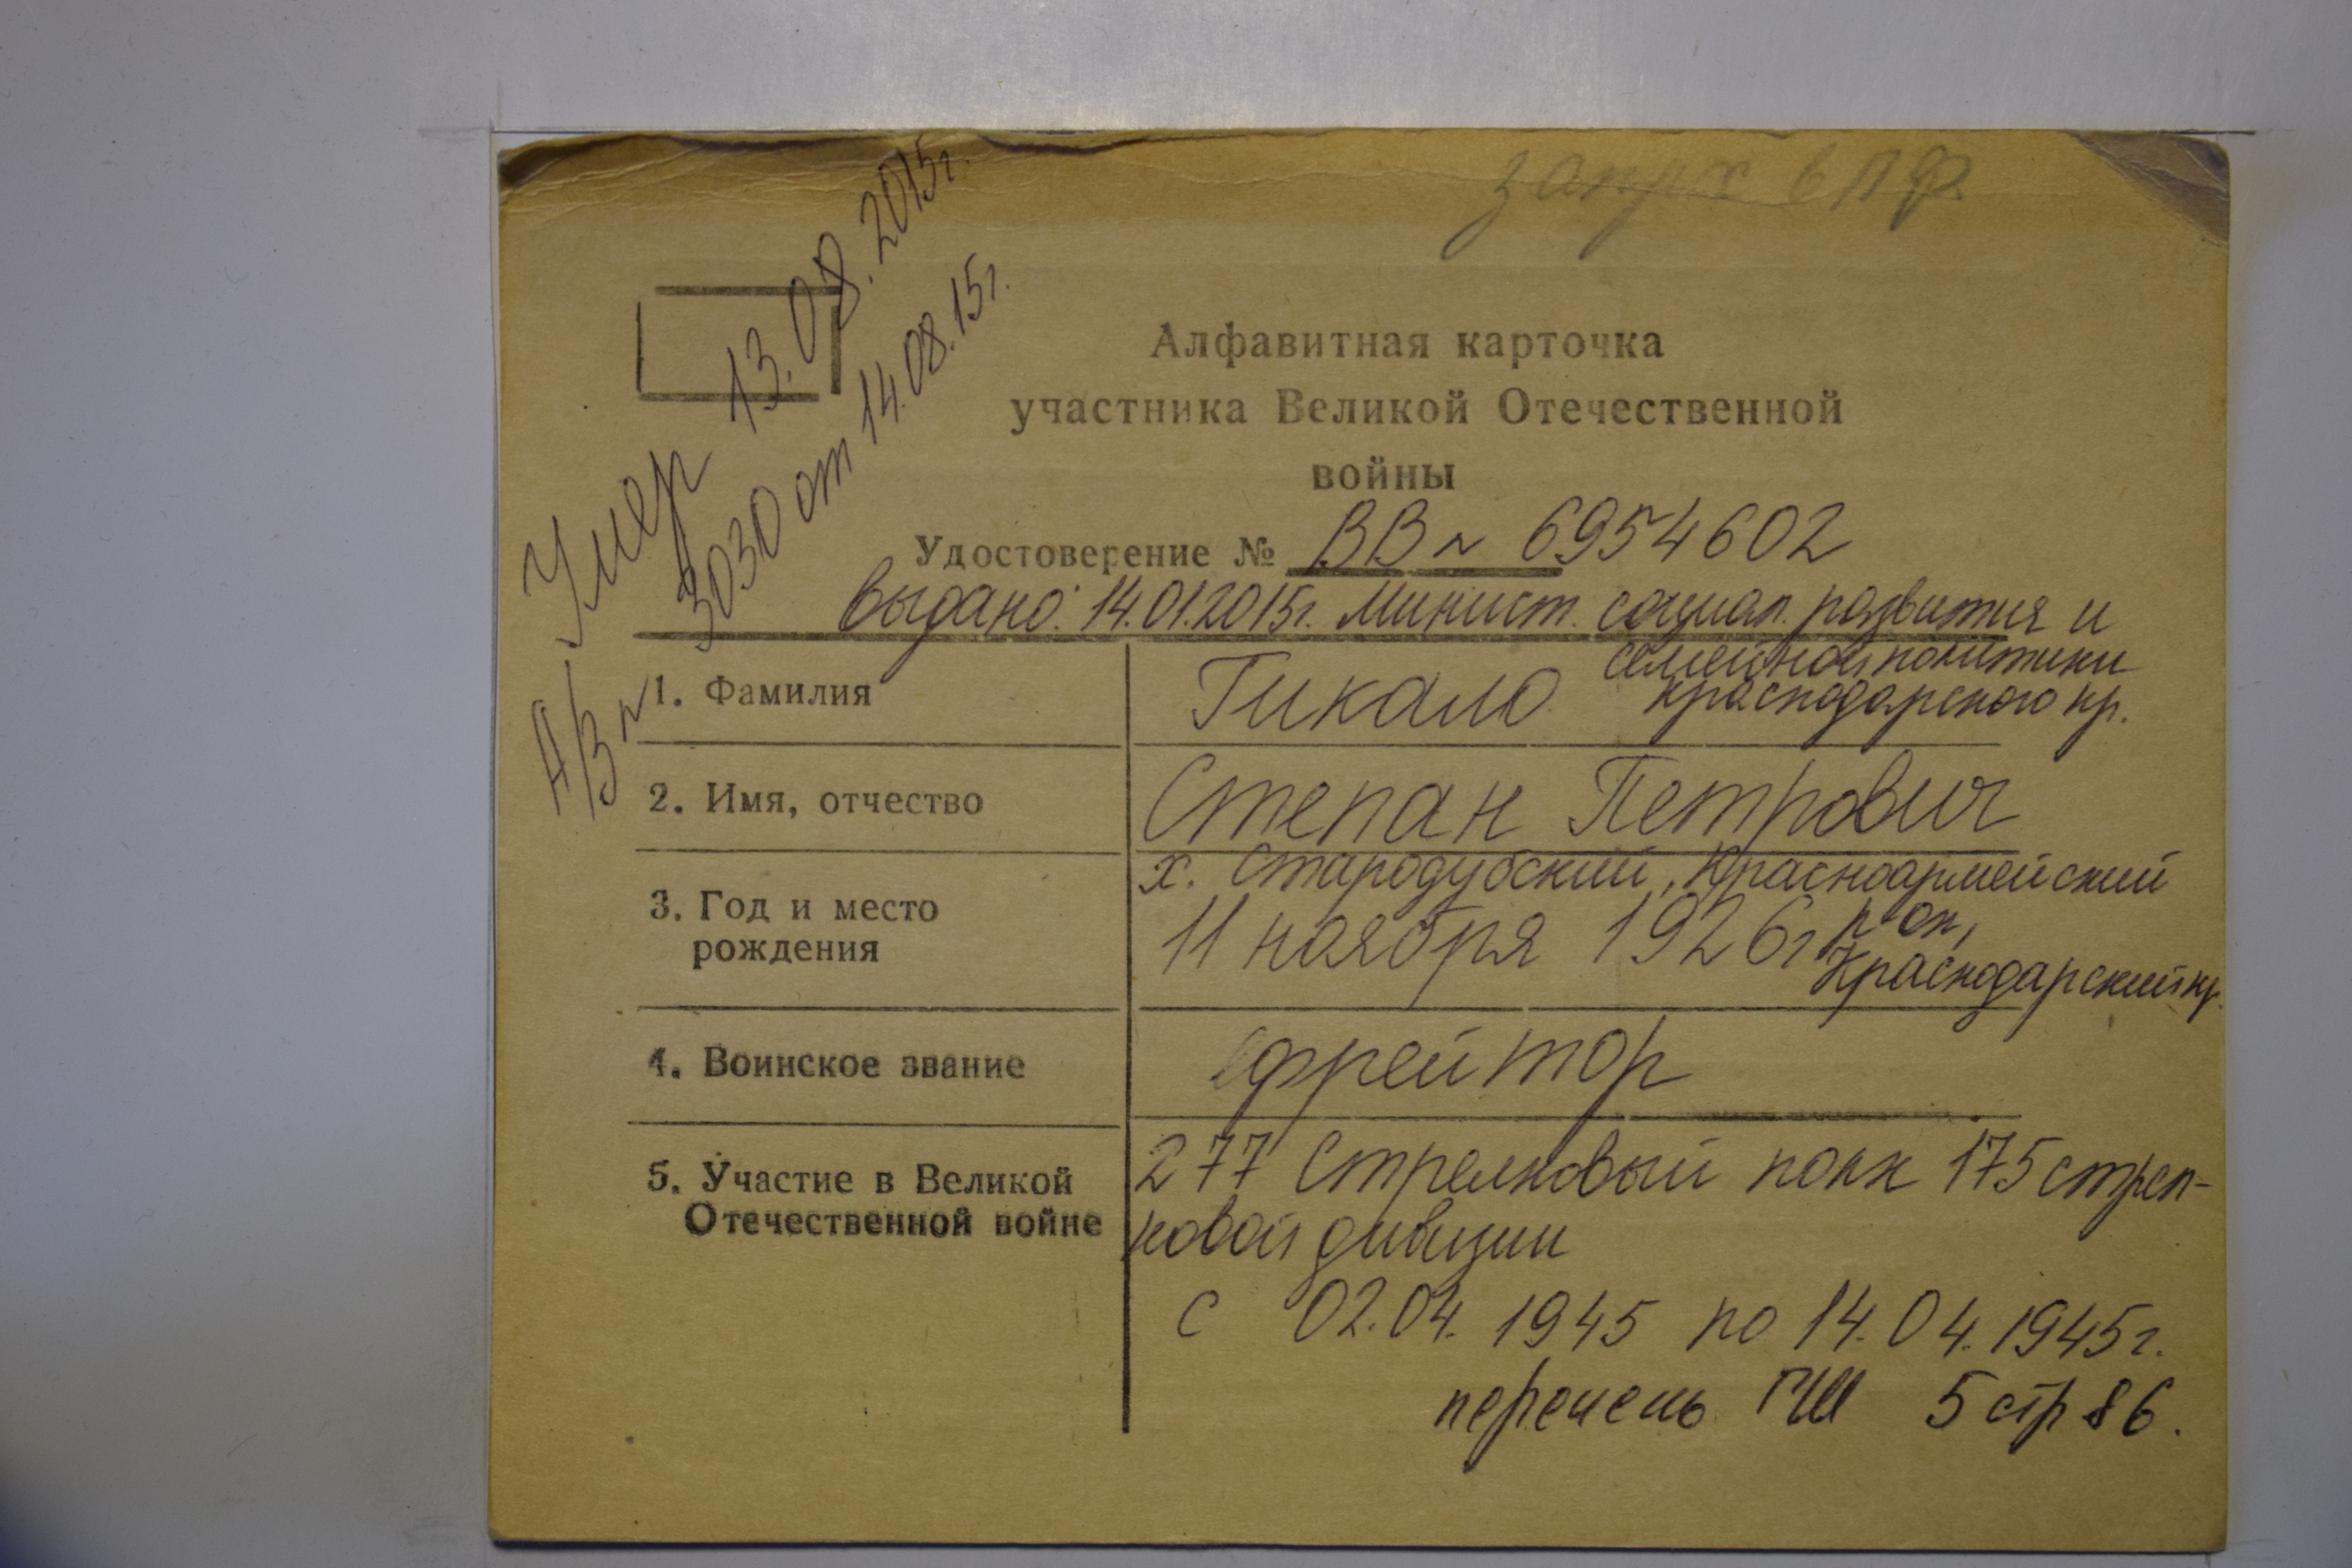 в п ф.
Умер 13.08.2015г.
АВ № 3030 от 14.08.15г.
Алфавитная карточка
участника Великой Отечественной
войны
Удостоверение № ВВ № 6954602
выдано: 14.01.2015г. Минист. социал. развития и
семейной политики
Краснодарского кр.
1. Фамилия Гикало
2. Имя, отчество Степан Петрович
х. Стародубский, Красноармейский
р-он,
3. Год и место
рождения
11 ноября 1926г
Краснодарский кр.
4. Воинское звание ефрейтор
5. Участие в Великой
Отечественной войне
277 Стрелковый полк 175 стрел-
ковой дивизии
с 02.04.1945 по 14.04.1945г.
перечень ГШ 5 стр 86.